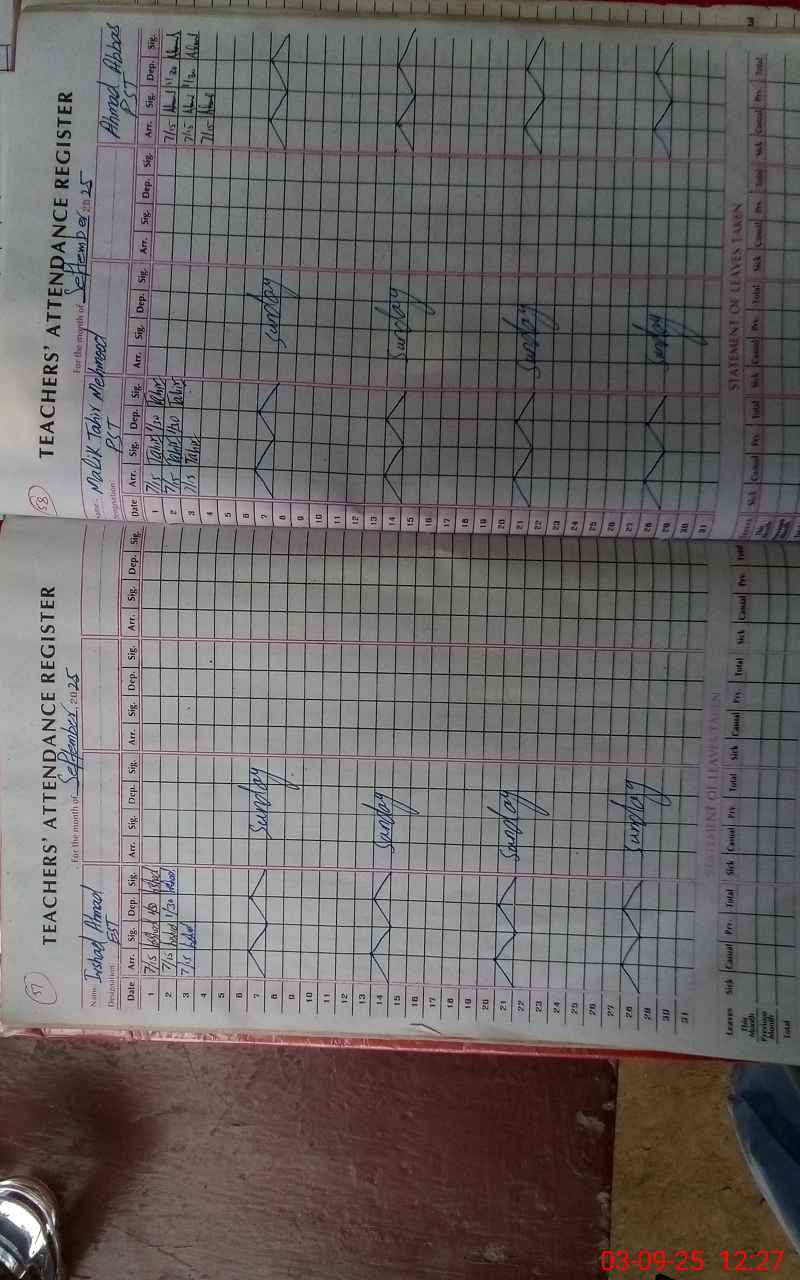 57
TEACHERS' ATTENDANCE REGISTER
For the month of September 2025
Name Irshad Ahmad
Designation EST
Date Arr. Sig. Dep. Sig. Arr. Sig. Dep. Sig. Arr. Sig. Dep. Sig. Arr. Sig. Dep. Sig.
1 7/15 Irshad 1/30 Irshad
2 7/15 Irshad 1/30 Irshad
3 7/15 Irshad
4
5
6
7 Sunday
8
9
10
11
12
13
14 Sunday
15
16
17
18
19
20
21 Sunday
22
23
24
25
26
27
28 Sunday
29
30
31
STATEMENT OF LEAVES TAKEN
Leaves Sick Casual Prv. Total Sick Casual Prv. Total Sick Casual Prv. Total Sick Casual Prv. Total
This Month
Previous Month
Total
58
TEACHERS' ATTENDANCE REGISTER
For the month of September 2025
Name Malik Tahir Mehmood Ahmad Abbas
Designation PST PST
Date Arr. Sig. Dep. Sig. Arr. Sig. Dep. Sig. Arr. Sig. Dep. Sig. Arr. Sig. Dep. Sig.
1 7/15 Tahir 1/30 Tahir 7/15 Ahmad 1/30 Ahmad
2 7/15 Tahir 1/30 Tahir 7/15 Ahmad 1/30 Ahmad
3 7/15 Tahir 7/15 Ahmad
4
5
6
7 Sunday
8
9
10
11
12
13
14 Sunday
15
16
17
18
19
20
21 Sunday
22
23
24
25
26
27
28 Sunday
29
30
31
STATEMENT OF LEAVES TAKEN
Leaves Sick Casual Prv. Total Sick Casual Prv. Total Sick Casual Prv. Total Sick Casual Prv. Total
This Month
Previous Month
03-09-25 12:27